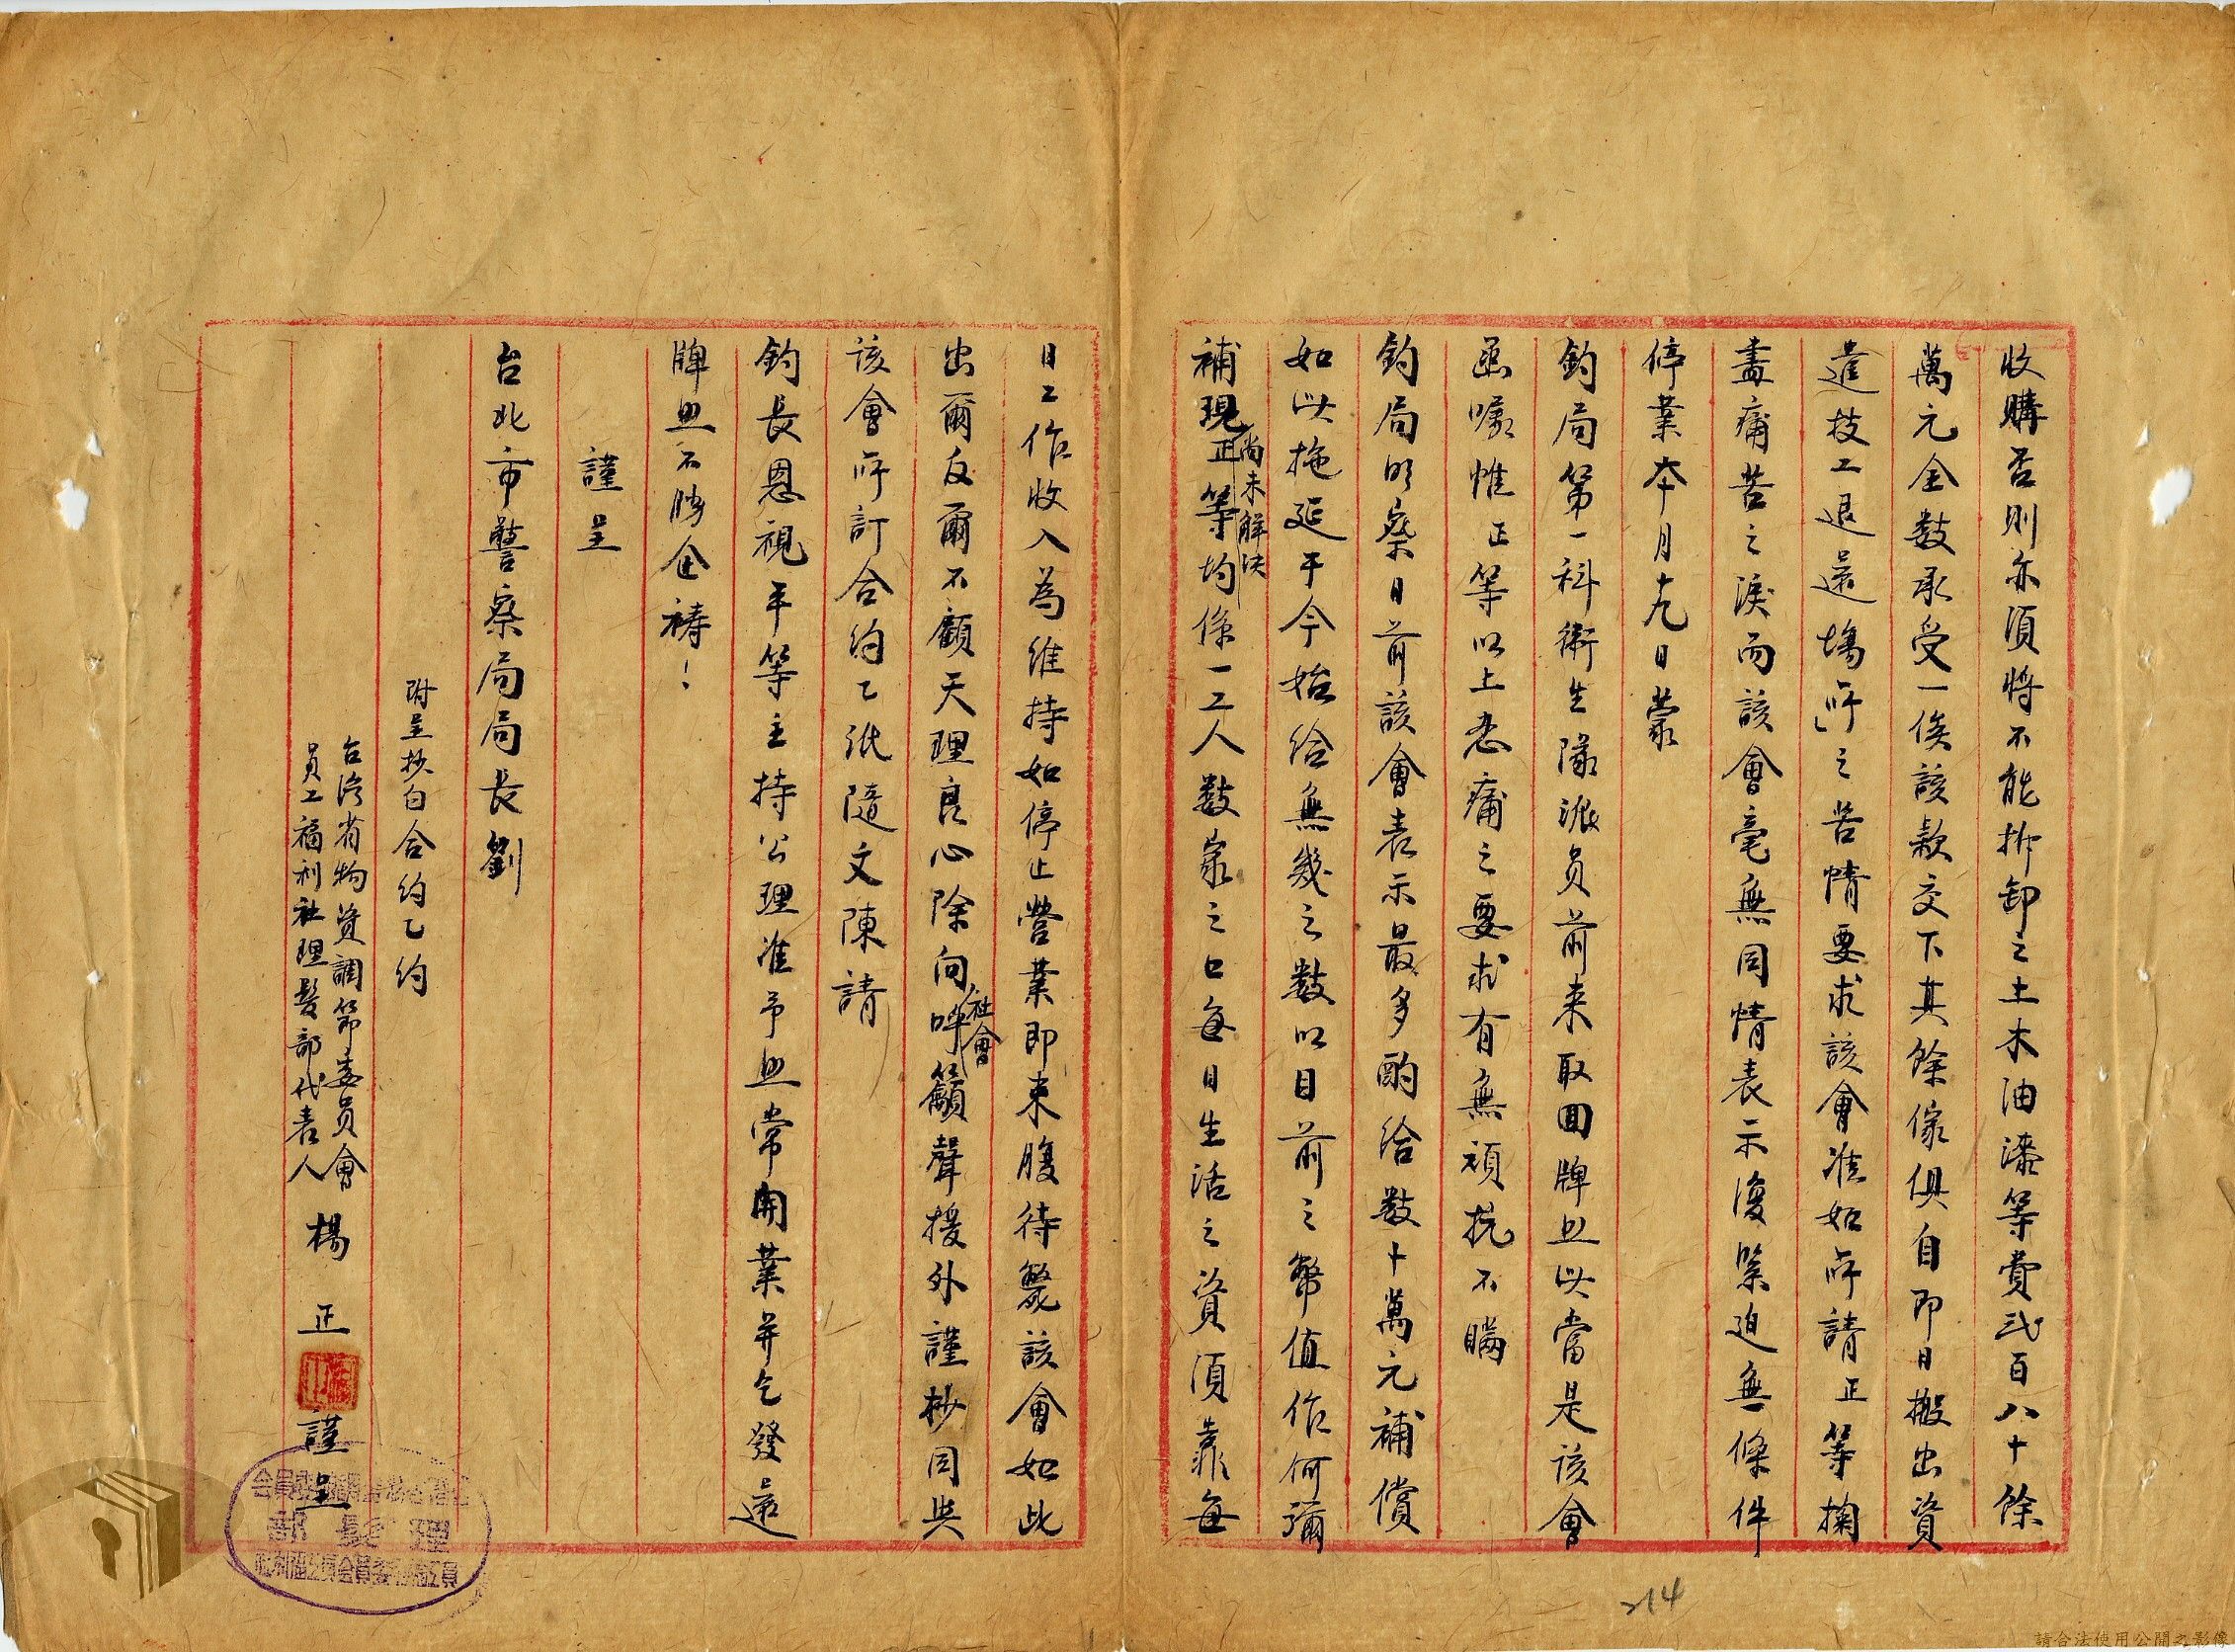 收購否則亦須將不能拆卸之土木油漆等費弍百八十餘
萬元全数承受一俟該款交下其餘傢俱自即日搬出資
遣技工退還塲所」之苦情要求該會准如所請正等掬
盡痛苦之淚而該會毫無同情表示復緊迫無條件
停業本月十九日蒙
鈞局第一科衛生隊派員前来取回牌照以當是該會
函囑惟正等以上悲痛之要求有無頑抗不瞞
鈞局明察日前該會表示最多酌給数十萬元補償
如以拖延于今始給無幾之数以目前之幣值作何彌
補現正等尚未解决均係一工人数家之口每日生活之資須靠每
日工作收入為維持如停止營業即束腹待斃該會如此
出爾反爾不顧天理良心除向社會呼籲聲援外謹抄同與
該會所訂合約乙紙隨文陳請
鈞長恩視平等主持公理准予照常開業并乞發還
牌照不勝企禱！
謹呈
台北市警察局局長劉
附呈抄白合約乙約
台湾省物資調節委員會
員工福利社理髮部代表人 楊正 謹呈
理髮部
214
請合法使用公開之影像